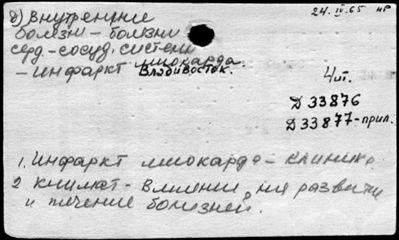 24.IV.65 нр
8) Внутренние
болезни - болезни
серд-сосуд. систем
- инфаркт миокарда.
Владивосток.
4 шт.
Д 33876
Д 33877-прил.
1. Инфаркт миокарда - клиника
2 климат - влияние на развитие
и течение болезней.